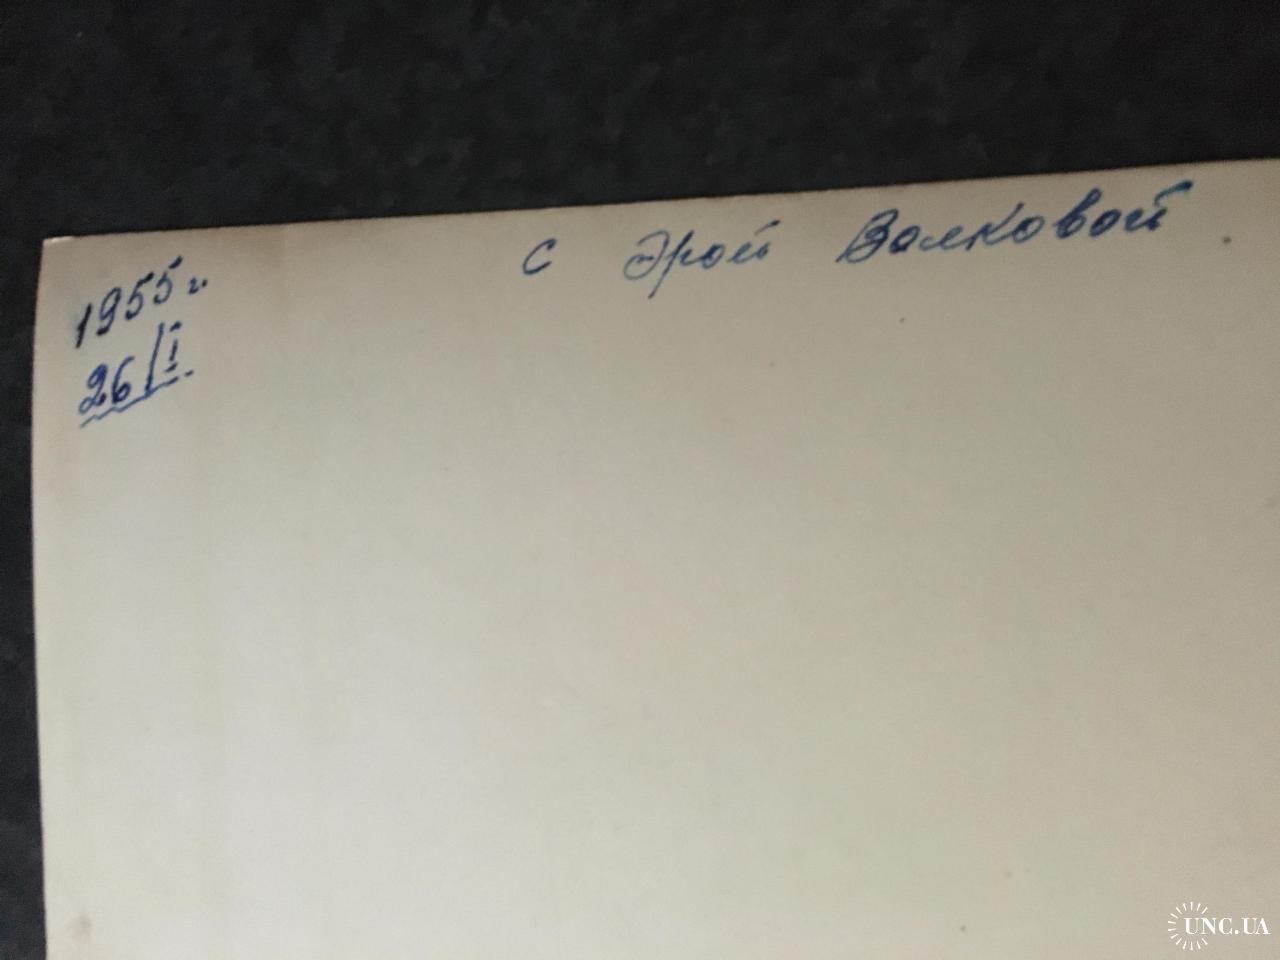 1955 г. с Эрой Волковой
26/I
UNC.UA